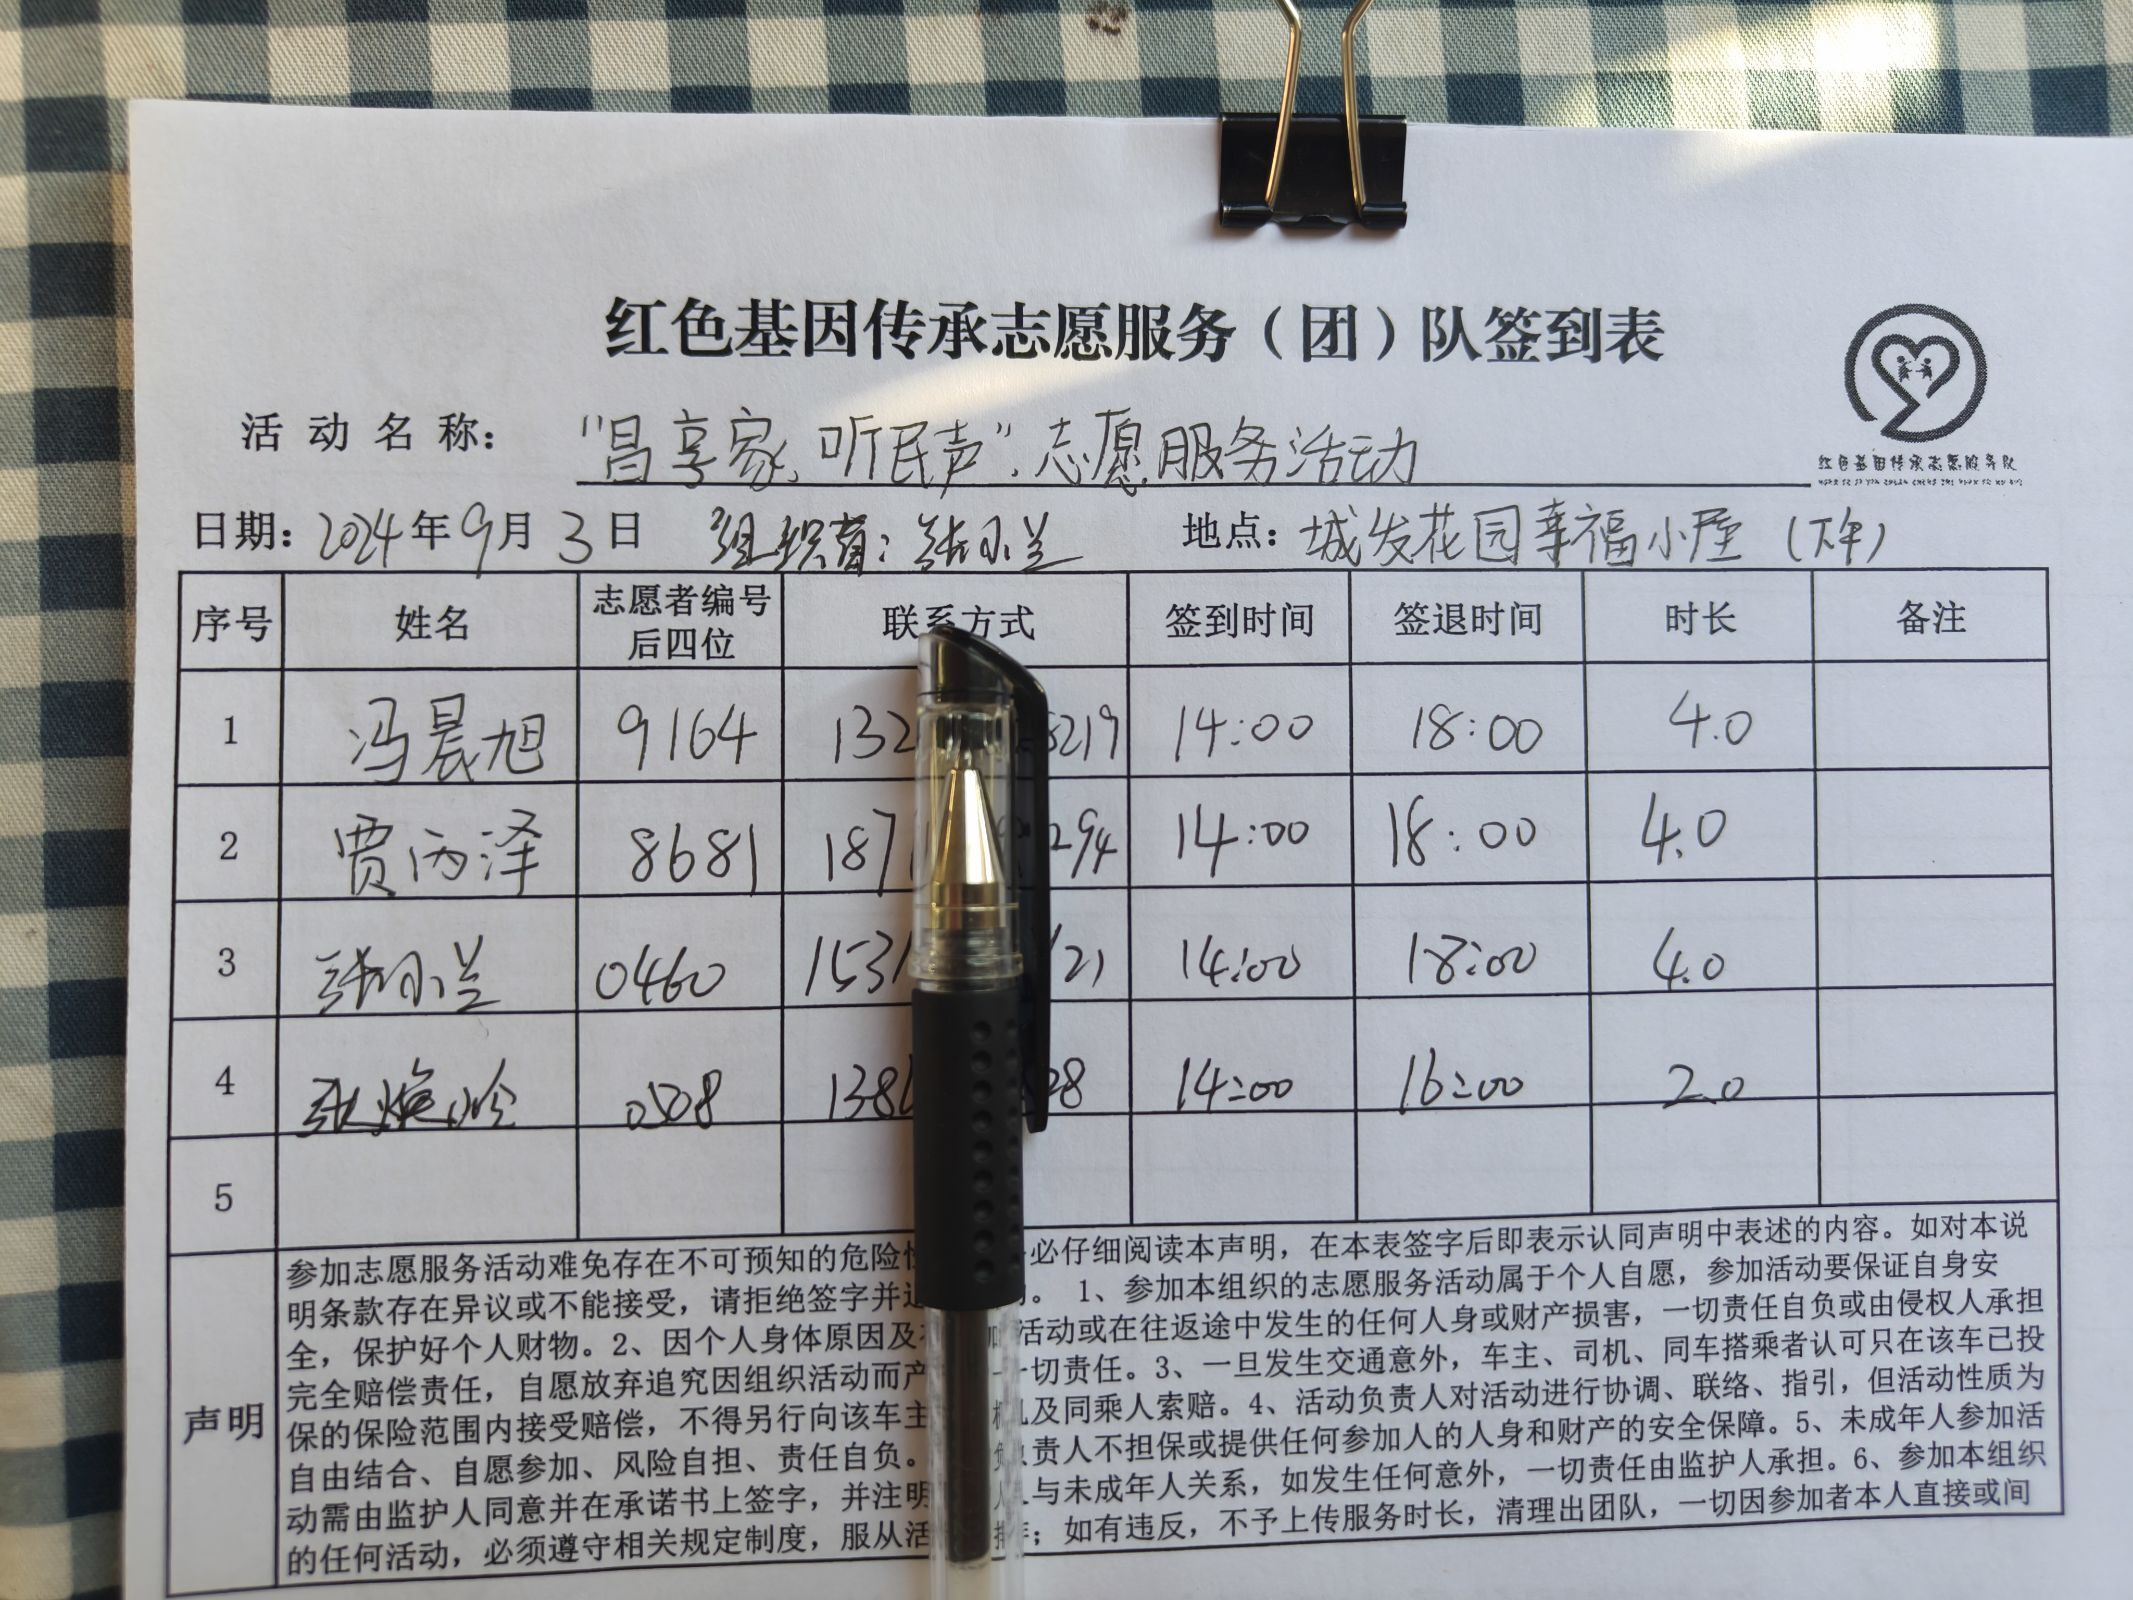 红色基因传承志愿服务（团）队签到表
活动名称：“昌享家、听民声”志愿服务活动
红色基因传承志愿服务队
日期：2024年9月3日 组织者：张小兰 地点：城发花园幸福小屋（下午）
序号 姓名 志愿者编号后四位 联系方式 签到时间 签退时间 时长 备注
1 冯晨旭 9164 132 8219 14:00 18:00 4.0
2 贾丙泽 8681 187 294 14:00 18:00 4.0
3 张小兰 0460 1531 121 14:00 18:00 4.0
4 0508 138 28 14:00 16:00 2.0
5
声明
参加志愿服务活动难免存在不可预知的危险性 必仔细阅读本声明，在本表签字后即表示认同声明中表述的内容。如对本说
明条款存在异议或不能接受，请拒绝签字并 。 1、参加本组织的志愿服务活动属于个人自愿，参加活动要保证自身安
全，保护好个人财物。2、因个人身体原因及 活动或在往返途中发生的任何人身或财产损害，一切责任自负或由侵权人承担
完全赔偿责任，自愿放弃追究因组织活动而产 一切责任。3、一旦发生交通意外，车主、司机、同车搭乘者认可只在该车已投
保的保险范围内接受赔偿，不得另行向该车主 机及同乘人索赔。4、活动负责人对活动进行协调、联络、指引，但活动性质为
自由结合、自愿参加、风险自担、责任自负。 负责人不担保或提供任何参加人的人身和财产的安全保障。5、未成年人参加活
动需由监护人同意并在承诺书上签字，并注明 人与未成年人关系，如发生任何意外，一切责任由监护人承担。6、参加本组织
的任何活动，必须遵守相关规定制度，服从活 ；如有违反，不予上传服务时长，清理出团队，一切因参加者本人直接或间